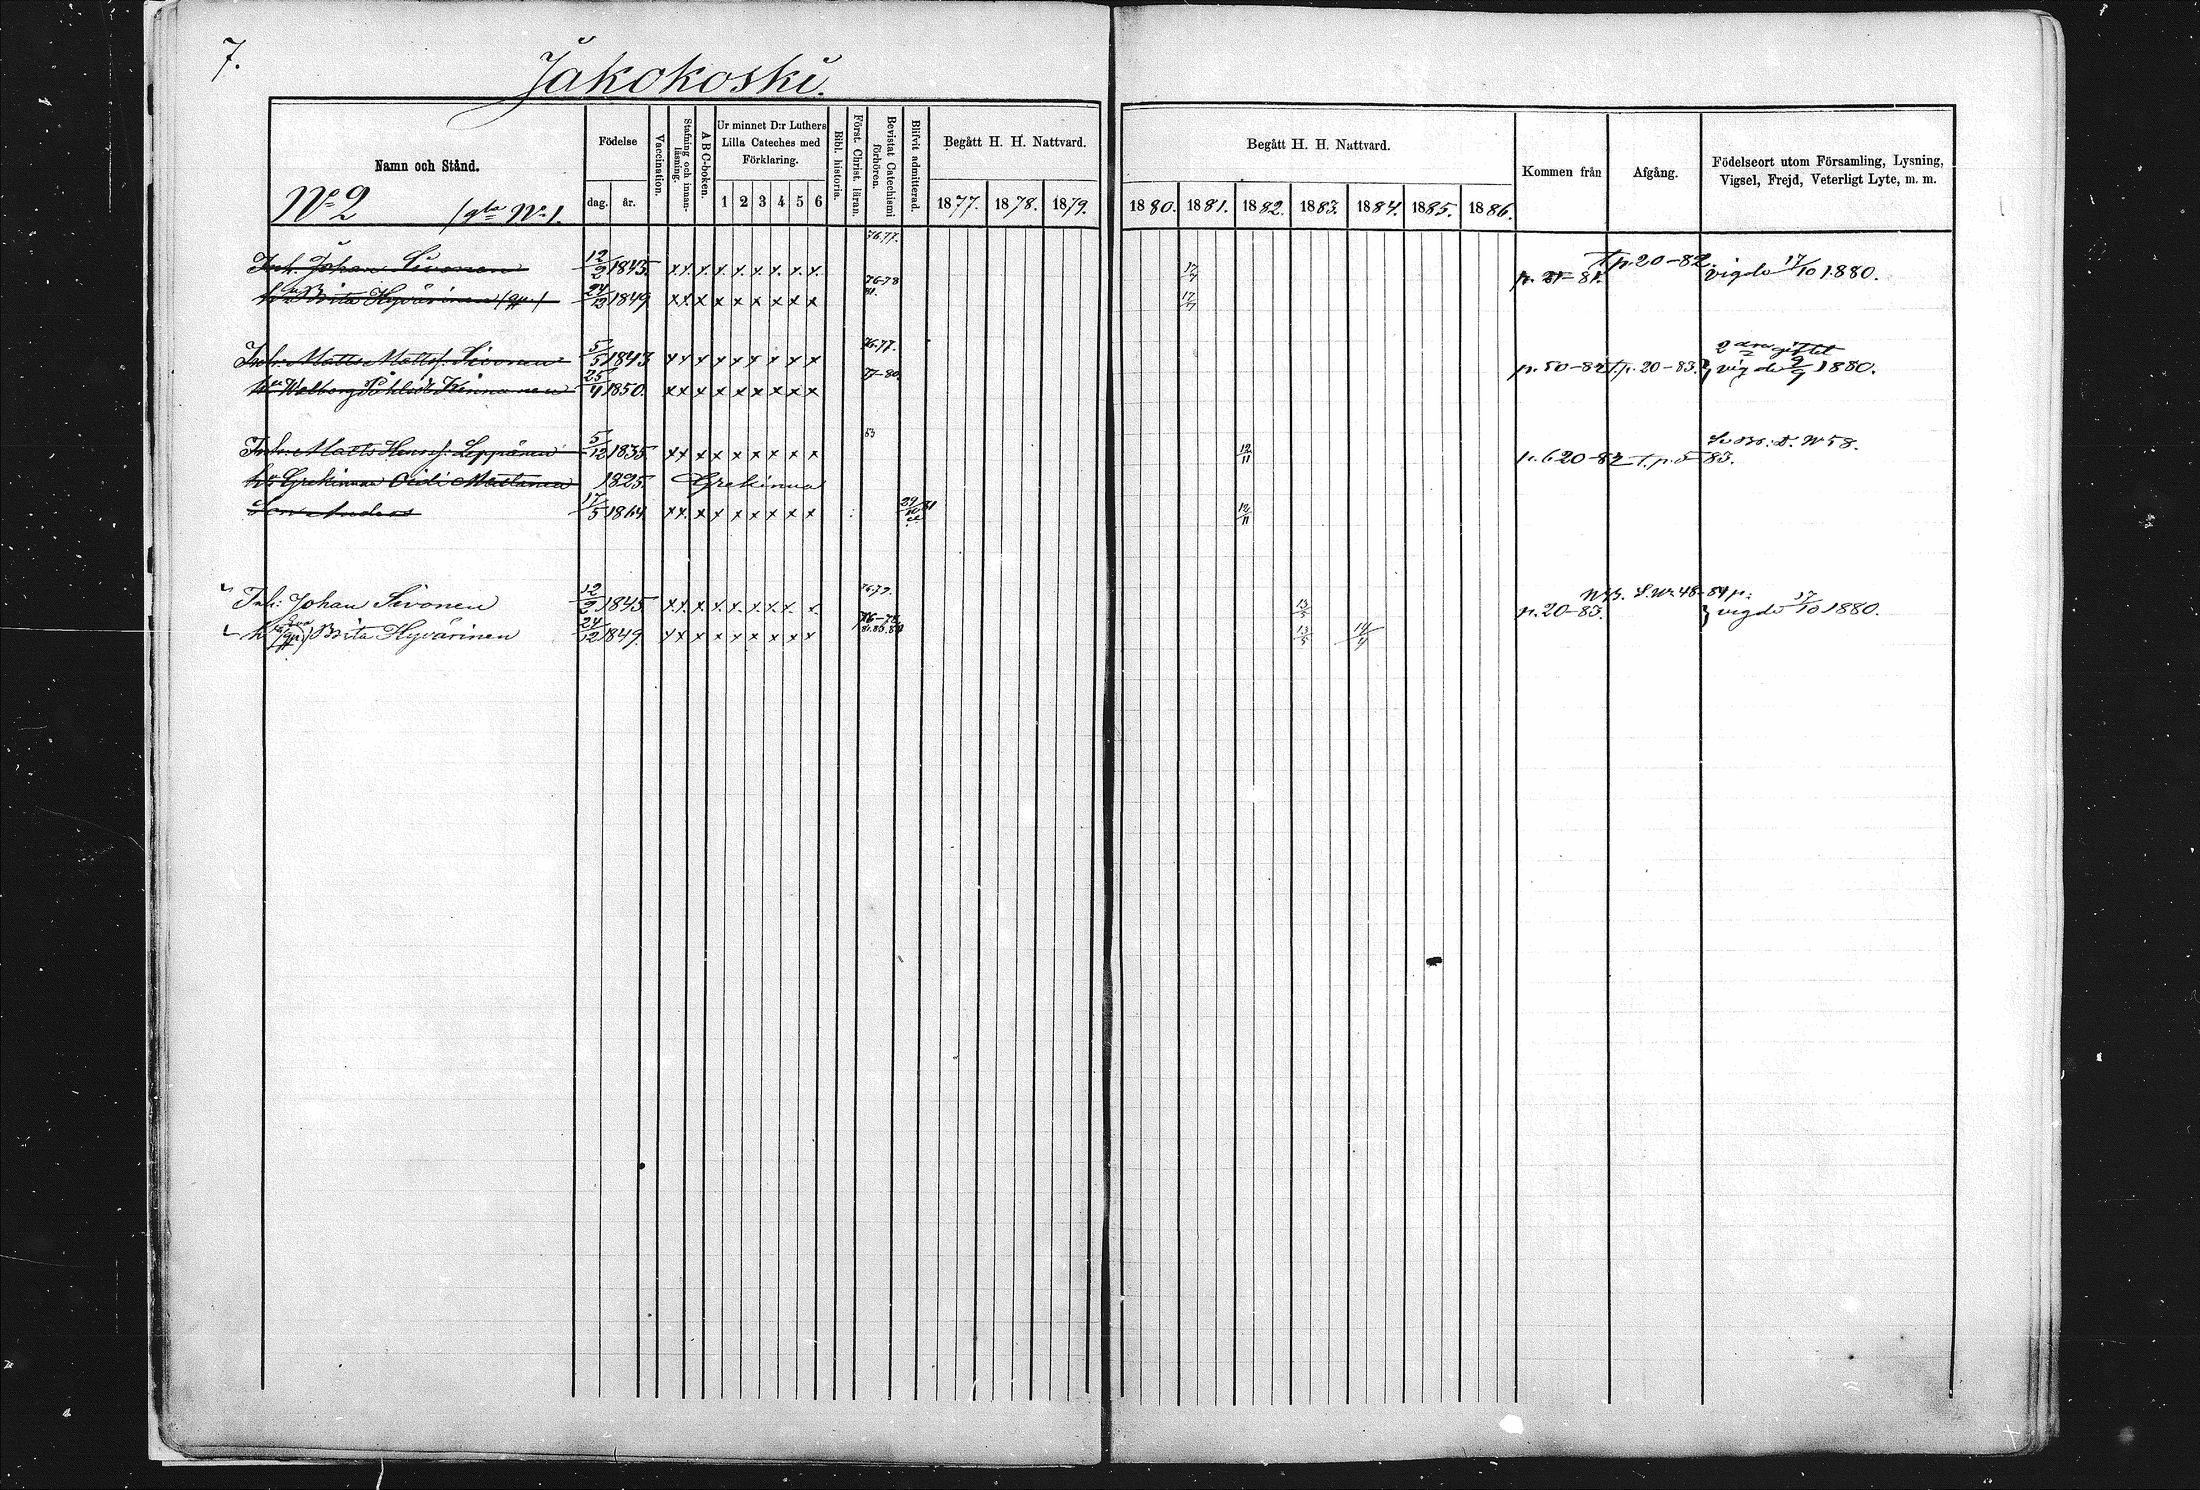 7.
Jakokoski.
Namn och Stånd.
Födelse
dag. år.
Vaccination.
Stafning och innanläsning.
ABC-boken.
Ur minnet D:r Luthers Lilla Cateches med Förklaring.
1 2 3 4 5 6
Bibl. historia.
Först. Christ. läran.
Bevistat Catechismi förhören.
Blifvit admitterad.
Begått H. H. Nattvard.
1877. 1878. 1879.
Begått H. H. Nattvard.
1880. 1881. 1882. 1883. 1884. 1885. 1886.
Kommen från
Afgång.
Födelseort utom Församling, Lysning, Vigsel, Frejd, Veterligt Lyte, m. m.
No 2 (gla No 1.
76.77.
Inh. Johan Sivonen 12/2 1845. x x. x x. x. x. x. x. x. 17/7 p. 21-81. T.p. 20-82. vigde 17/10 1880.
Brita Hyvärinen 24/12 1849. x x. x x x x x x x 76-78 81. 17/7
Inh. Matts Matts. Sivonen 5/5 1843 x x x x x x x x x 76.77. p. 50-82 T.p. 20-83. 2dra giftet
Walborg Påhlsdr Kinnunen 25/4 1850. x x x x x x x x x 77-80. vigde 2/9 1880.
Inh. Matts Leppänen 5/12 1835. x x x x x x x x x 53 12/11 p. 620-82 T. p. 5-83.
Grekinnan 1825. Grekinna
Son Anders 17/5 1864 x x. x x x x x x x 12/11
Inh: Johan Sivonen 12/2 1845 x x. x x. x. x x x. x. 76.79. 13/5 p. 20-83.
hu Brita Hyvärinen 24/12 1849. x x x x x x x x x 76-78. 13/5 14/9 vigde 17/10 1880.